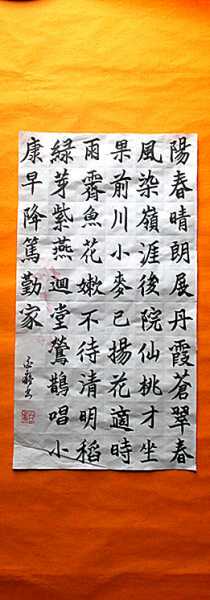 陽春晴朗展丹霞蒼翠春
風染嶺涯後院仙桃才坐
果前川小麥已揚花適時
雨霽魚花嫩不待清明稻
綠芽紫燕迴堂鶯鵲唱小
康早降篤勤家